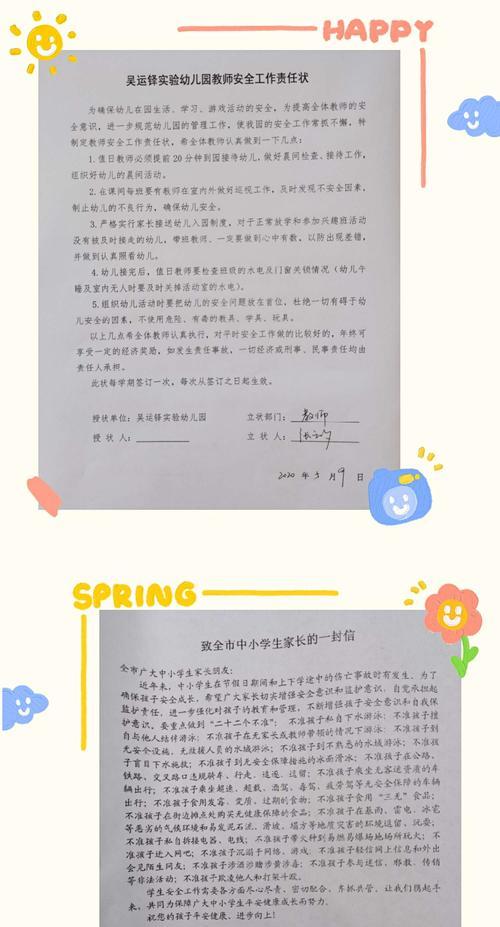 HAPPY
吴运铎实验幼儿园教师安全工作责任状
为确保幼儿在园生活、学习、游戏活动的安全，为提高全体教师的安
全意识，进一步规范幼儿园的管理工作，使我园的安全工作常抓不懈，特
制定教师安全工作责任状，希全体教师认真做到一下几点：
1.值日教师必须提前20分钟到园接待幼儿，做好晨间检查、接待工作，
组织好幼儿的晨间活动。
2.在课间每班要有教师在室内外做好巡视工作，及时发现不安全因素，
制止幼儿的不良行为，确保幼儿安全。
3.严格实行家长接送幼儿入园制度，对于正常放学和参加兴趣班活动
没有被及时接走的幼儿，带班教师、一定要做到心中有数，以防出现差错，
并做到认真照看幼儿。
4.幼儿接完后，值日教师要检查班级的水电及门窗关锁情况（幼儿午
睡及室内无人时要及时关掉活动室的水电）。
5.组织幼儿活动时要把幼儿的安全问题放在首位，杜绝一切有碍于幼
儿安全的因素，不使用危险、有毒的教具、学具、玩具。
以上几点希全体教师认真执行，对平时安全工作做的比较好的，年终可
享受一定的经济奖励，如发生责任事故，一切经济或刑事、民事责任均由
责任人承担。
此状每学期签订一次，每次从签订之日起生效。
授状单位：吴运铎实验幼儿园 立状部门：教师
授 状 人： 立 状 人：张
2020 年 5 月 9 日
SPRING
致全市中小学生家长的一封信
全市广大中小学生家长朋友：
近年来，中小学生在节假日期间和上下学途中的伤亡事故时有发生，为了
确保孩子安全成长，希望广大家长切实增强安全意识和监护意识，自觉承担起
监护责任，进一步强化对孩子的教育和管理，不断增强孩子安全意识和自我保
护意识，要重点做到“二十二个不准”：不准孩子私自下水游泳；不准孩子擅
自与他人结伴游泳；不准孩子在无家长或教师带领的情况下游泳；不准孩子到
无安全设施、无救援人员的水域游泳；不准孩子到不熟悉的水域游泳；不准孩
子盲目下水施救；不准孩子到无安全保障措施的冰面滑冰；不准孩子在公路、
铁路、交叉路口违规骑车、行走、追逐、逗留；不准孩子乘坐无客运资质的车
辆出行；不准孩子乘坐超速、超载、酒驾、毒驾、疲劳驾等无安全保障的车辆
出行；不准孩子食用发霉、变质、过期的食物；不准孩子食用“三无”食品；
不准孩子在街边摊点处购买无健康保障的食品；不准孩子在暴雨、雷电、冰雹
等恶劣的气候环境和易发泥石流、滑坡、塌方等地质灾害的环境逗留、玩耍；
不准孩子私自拆接电器、电线；不准孩子带火种到易燃易爆场地场所玩火；不
准孩子进入网吧；不准孩子沉溺于网络、游戏；不准孩子轻信网上信息和外出
会见陌生网友；不准孩子涉酒涉赌涉黄涉毒；不准孩子参与迷信、邪教、传销
等非法活动；不准孩子欺凌他人和打架斗殴。
学生安全工作需要各方面尽心尽责、密切配合、齐抓共管，让我们携起手
来，共同为保障广大中小学生平安健康成长而努力。
祝您的孩子平安健康、进步向上！